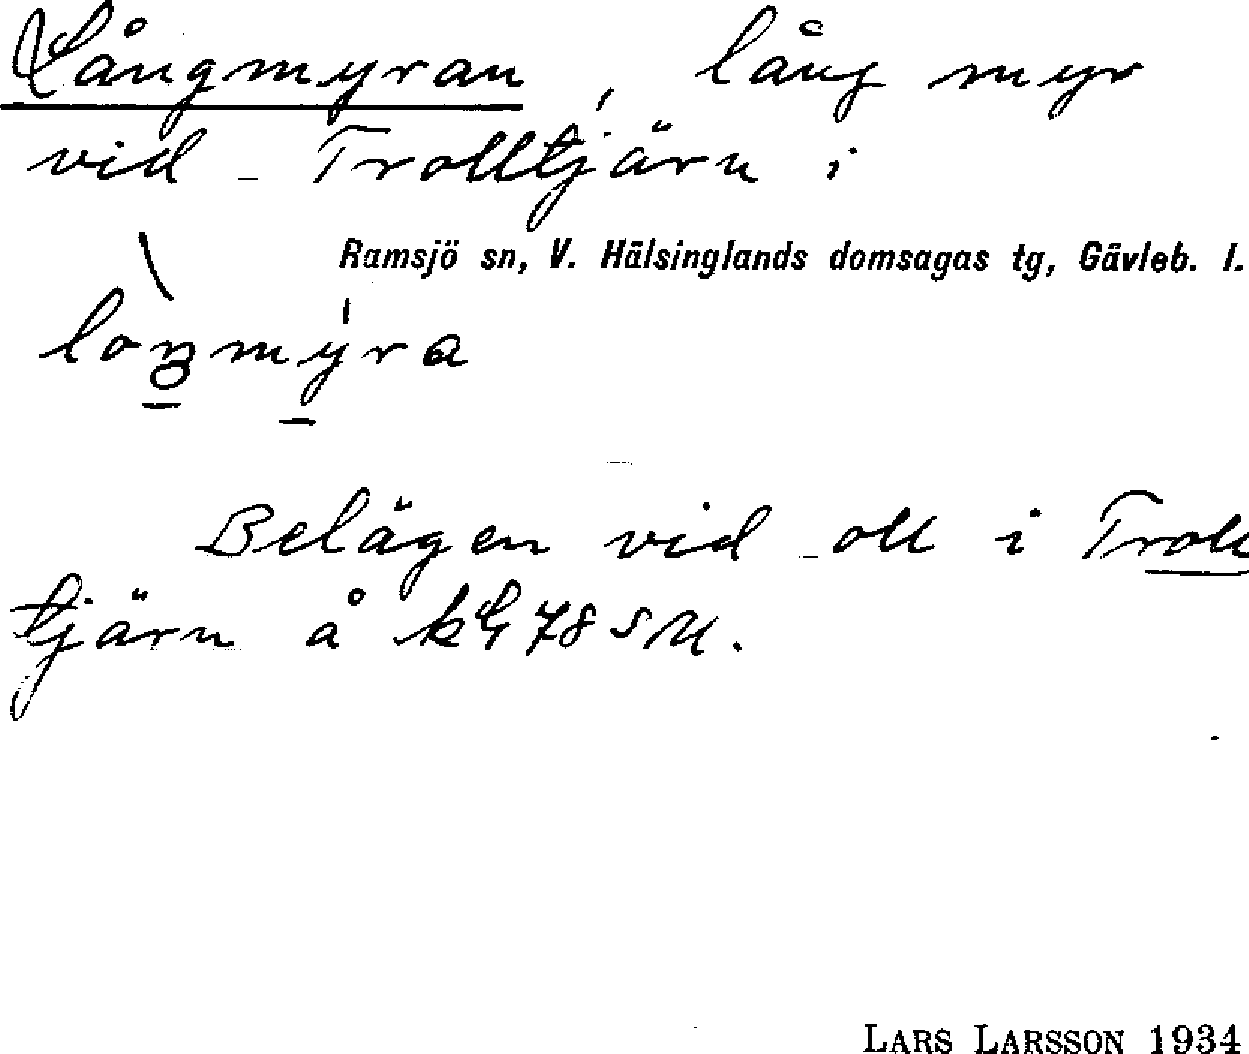 Långmyran, lång myr
vid Trolltjärn i
Ramsjö sn, V. Hälsinglands domsagas tg, Gävleb. l.
Belägen vid oll i Troll
tjärn å kbl 78 SV.
LARS LARSSON 1934